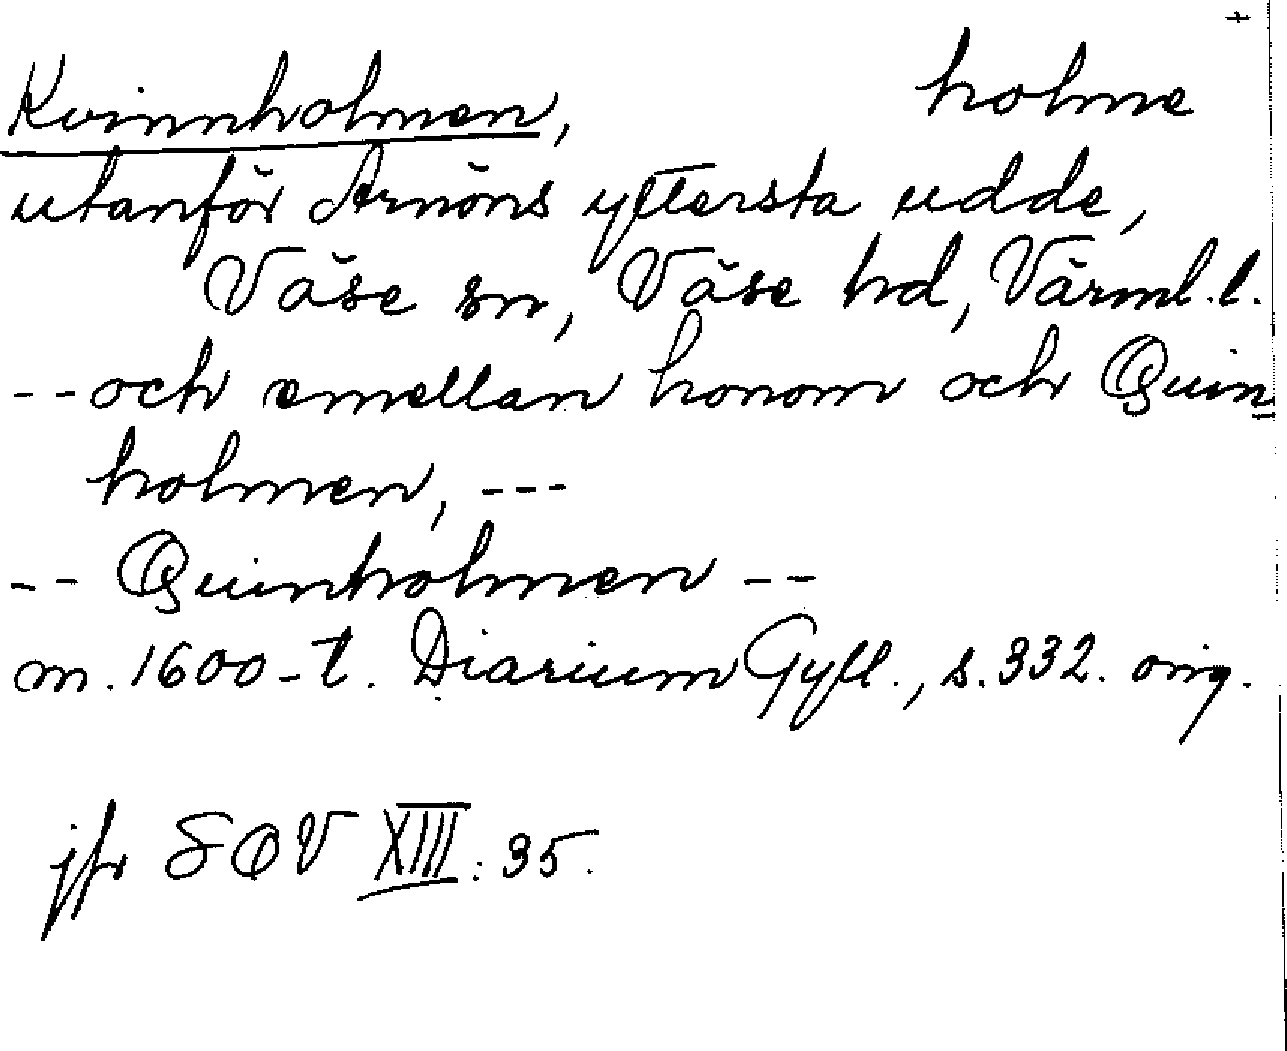 Kvinnholmen, holme
utanför Arnöns yttersta udde,
Väse sn, Väse hd, Värml. l.
-- och emellan honom och Quin=
holmen, ---
-- Quinholmen --
m. 1600-t. Diarium Gyll., s. 332. orig.
jfr SOV XIII: 35.